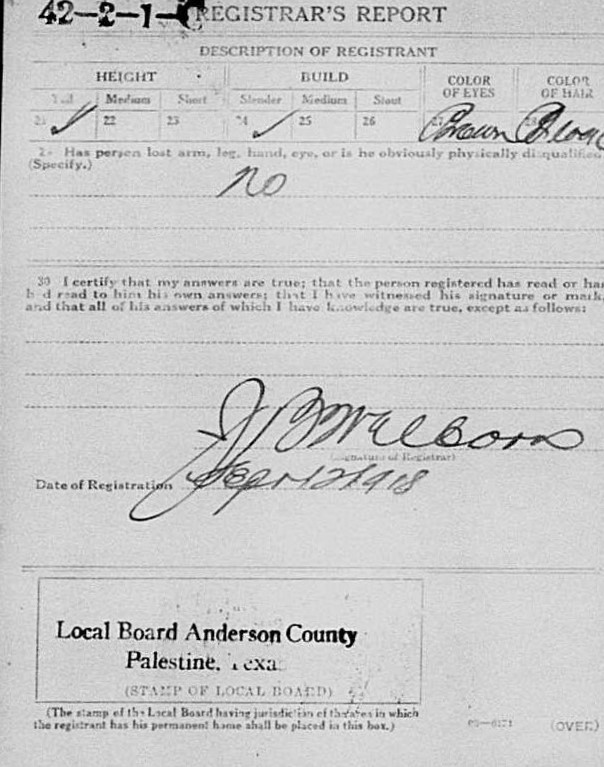 42-2-1-C REGISTRAR'S REPORT
DESCRIPTION OF REGISTRANT
HEIGHT BUILD COLOR OF EYES COLOR OF HAIR
Tall Medium Short Slender Medium Stout
21 ✓ 22 23 24 ✓ 25 26 27 Brown 28 Black
29 Has person lost arm, leg, hand, eye, or is he obviously physically disqualified
(Specify.)
No
30 I certify that my answers are true; that the person registered has read or has
had read to him his own answers; that I have witnessed his signature or mark,
and that all of his answers of which I have knowledge are true, except as follows:
J B Welborn
(Signature of Registrar)
Date of Registration Sept 12 1918
Local Board Anderson County
Palestine, Texas
(STAMP OF LOCAL BOARD)
(The stamp of the Local Board having jurisdiction of the area in which
the registrant has his permanent home shall be placed in this box.)
(OVER)